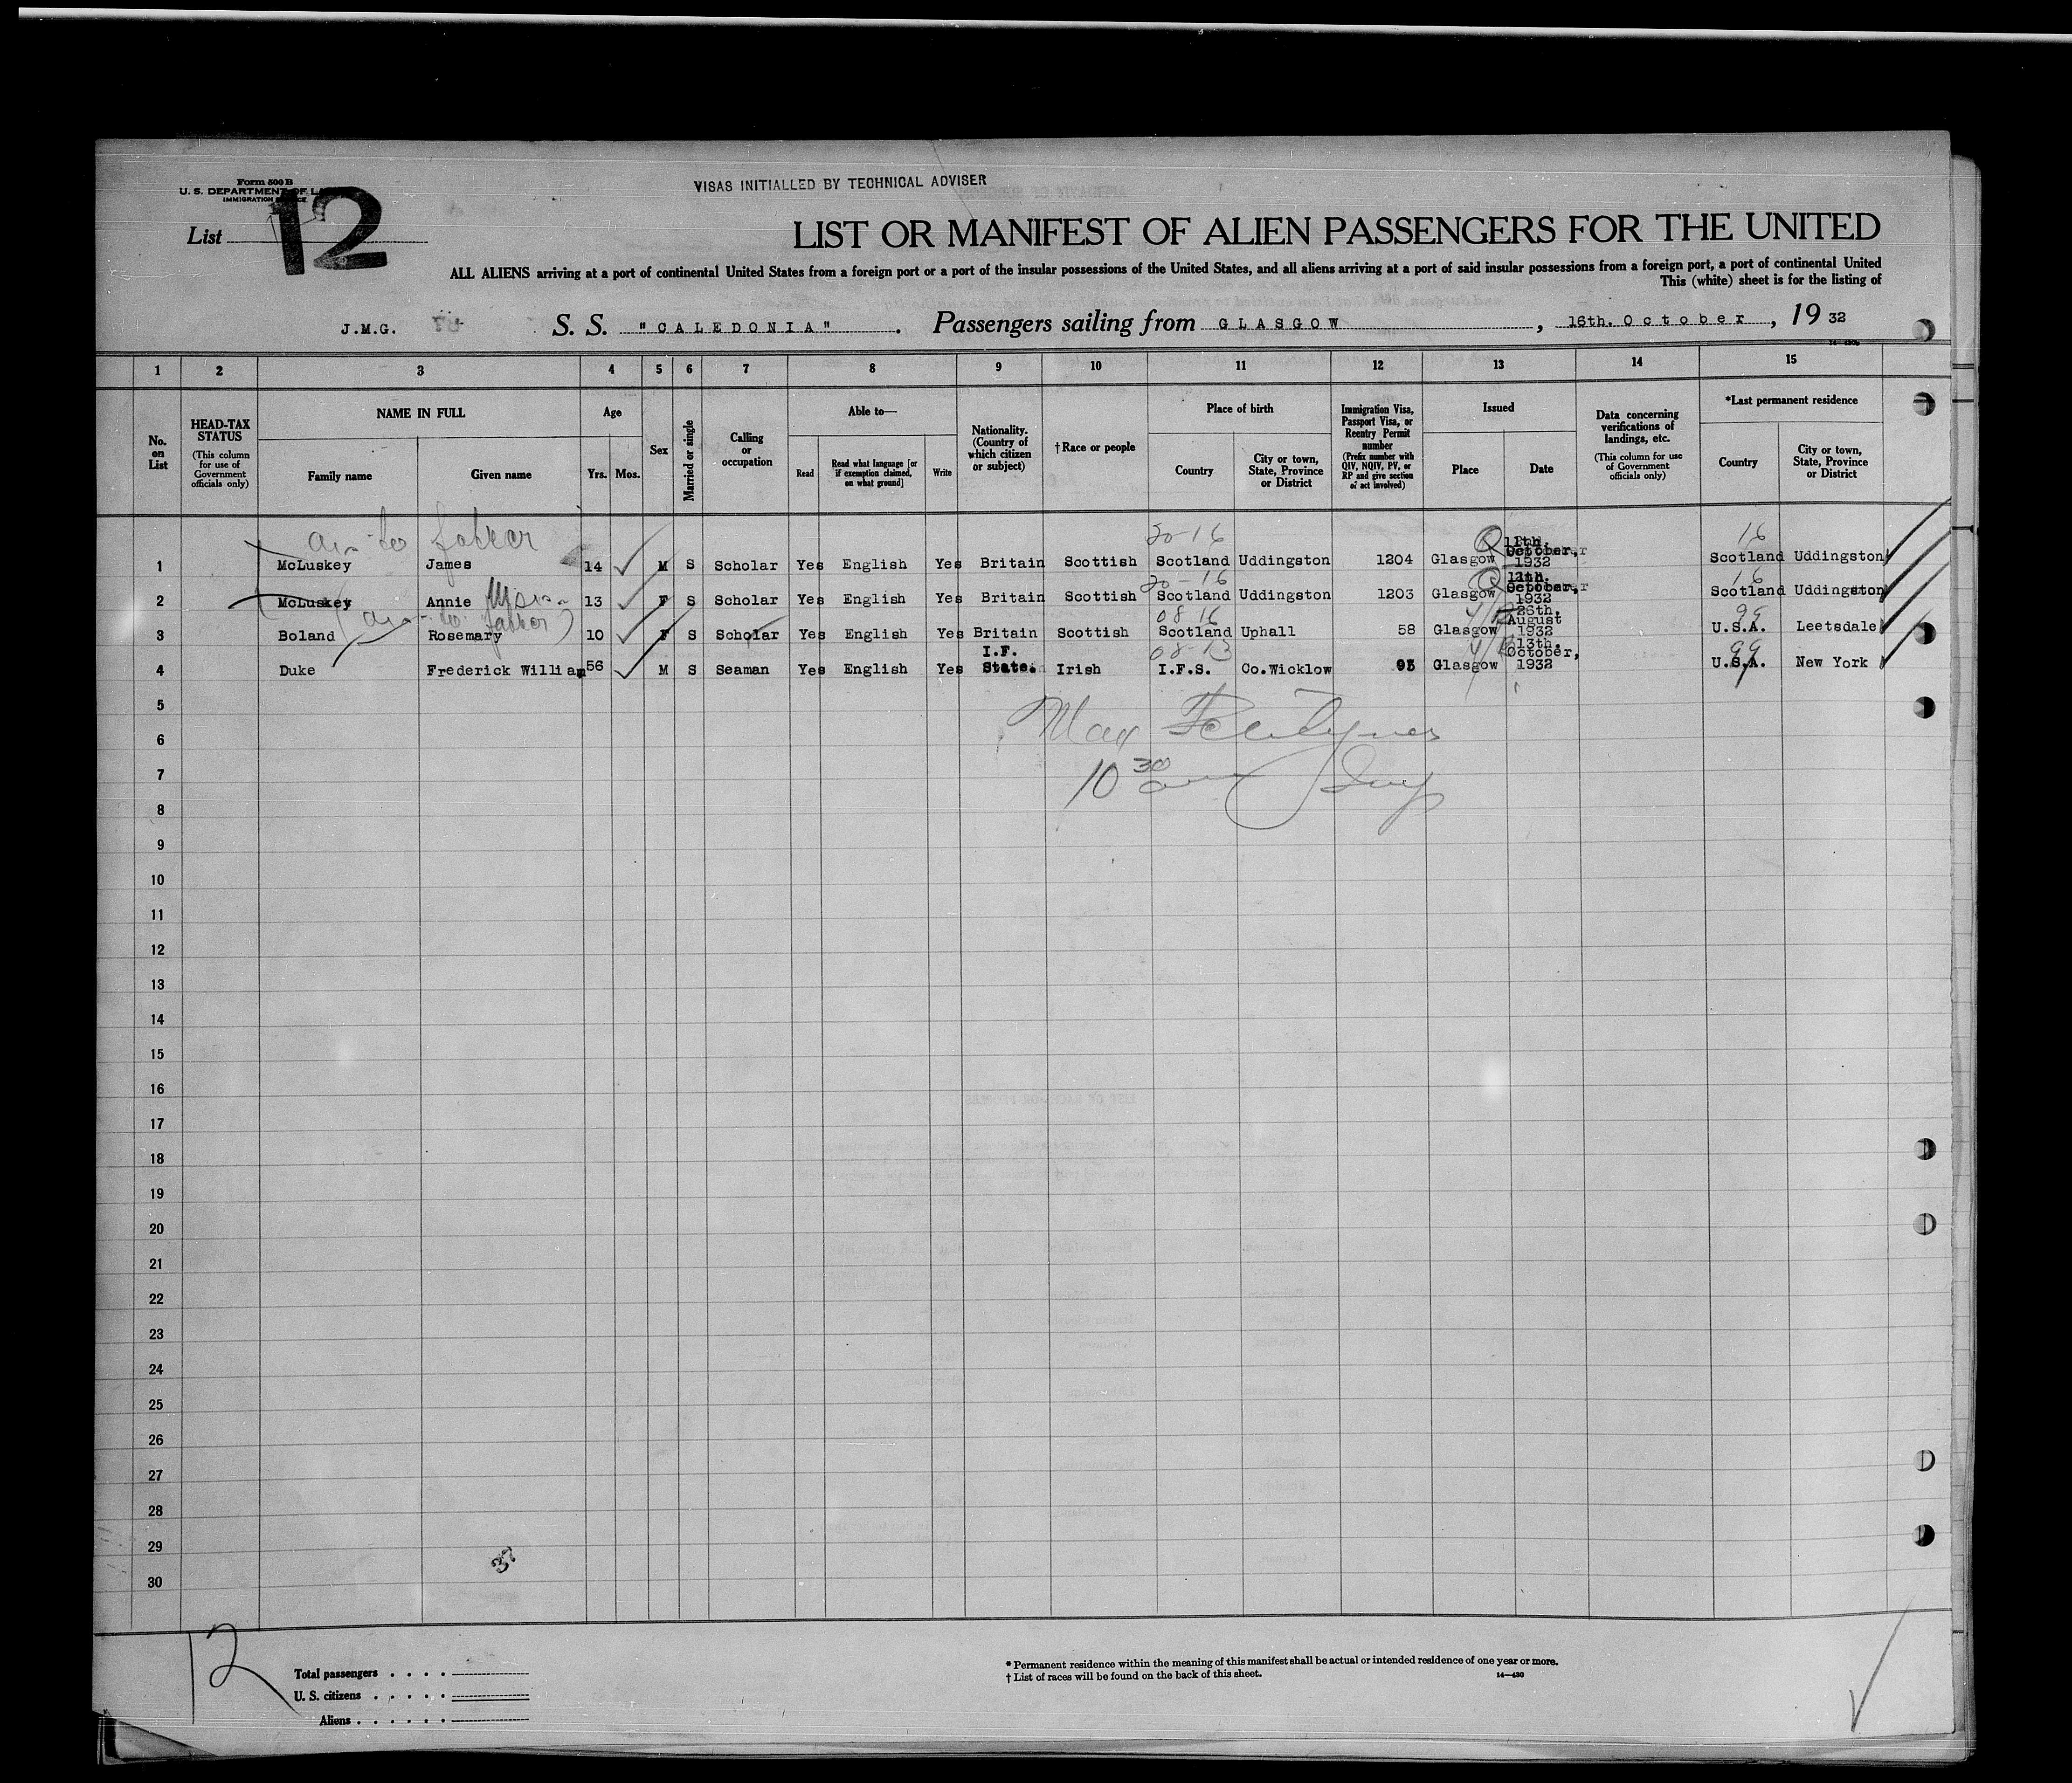 Form 500 B
U. S. DEPARTMENT OF
IMMIGRATION
VISAS INITIALLED BY TECHNICAL ADVISER
List 12
LIST OR MANIFEST OF ALIEN PASSENGERS FOR THE UNITED
ALL ALIENS arriving at a port of continental United States from a foreign port or a port of the insular possessions of the United States, and all aliens arriving at a port of said insular possessions from a foreign port, a port of continental United
This (white) sheet is for the listing of
J.M.G. S. S. "CALEDONIA". Passengers sailing from GLASGOW, 16th. October, 1932
1 2 3 4 5 6 7 8 9 10 11 12 13 14 15
No. on List
HEAD-TAX STATUS (This column for use of Government officials only)
NAME IN FULL
Family name Given name
Age
Yrs. Mos.
Sex
Married or single
Calling or occupation
Able to—
Read Read what language [or if exemption claimed, on what ground] Write
Nationality. (Country of which citizen or subject)
†Race or people
Place of birth
Country City or town, State, Province or District
Immigration Visa, Passport Visa, or Reentry Permit number (Prefix number with QIV, NQIV, PV, or RP and give section of act involved)
Issued
Place Date
Data concerning verifications of landings, etc. (This column for use of Government officials only)
*Last permanent residence
Country City or town, State, Province or District
to father
20-16 16
1 McLuskey James 14 M S Scholar Yes English Yes Britain Scottish Scotland Uddingston 1204 Glasgow 11th. October, 1932 Scotland Uddingston
20-16 16
2 McLuskey Annie 13 F S Scholar Yes English Yes Britain Scottish Scotland Uddingston 1203 Glasgow October, 1932 Scotland Uddingston
to father
08 16 99
3 Boland Rosemary 10 F S Scholar Yes English Yes Britain Scottish Scotland Uphall 58 Glasgow 26th, August 1932 U.S.A. Leetsdale
08-13 99
4 Duke Frederick William 56 M S Seaman Yes English Yes I.F. State. Irish I.F.S. Co.Wicklow 95 Glasgow 13th, October, 1932 U.S.A. New York
5
6
7
10 30
8
9
10
11
12
13
14
15
16
17
18
19
20
21
22
23
24
25
26
27
28
29
30
12
Total passengers
U. S. citizens
Aliens
* Permanent residence within the meaning of this manifest shall be actual or intended residence of one year or more.
† List of races will be found on the back of this sheet. 14—430